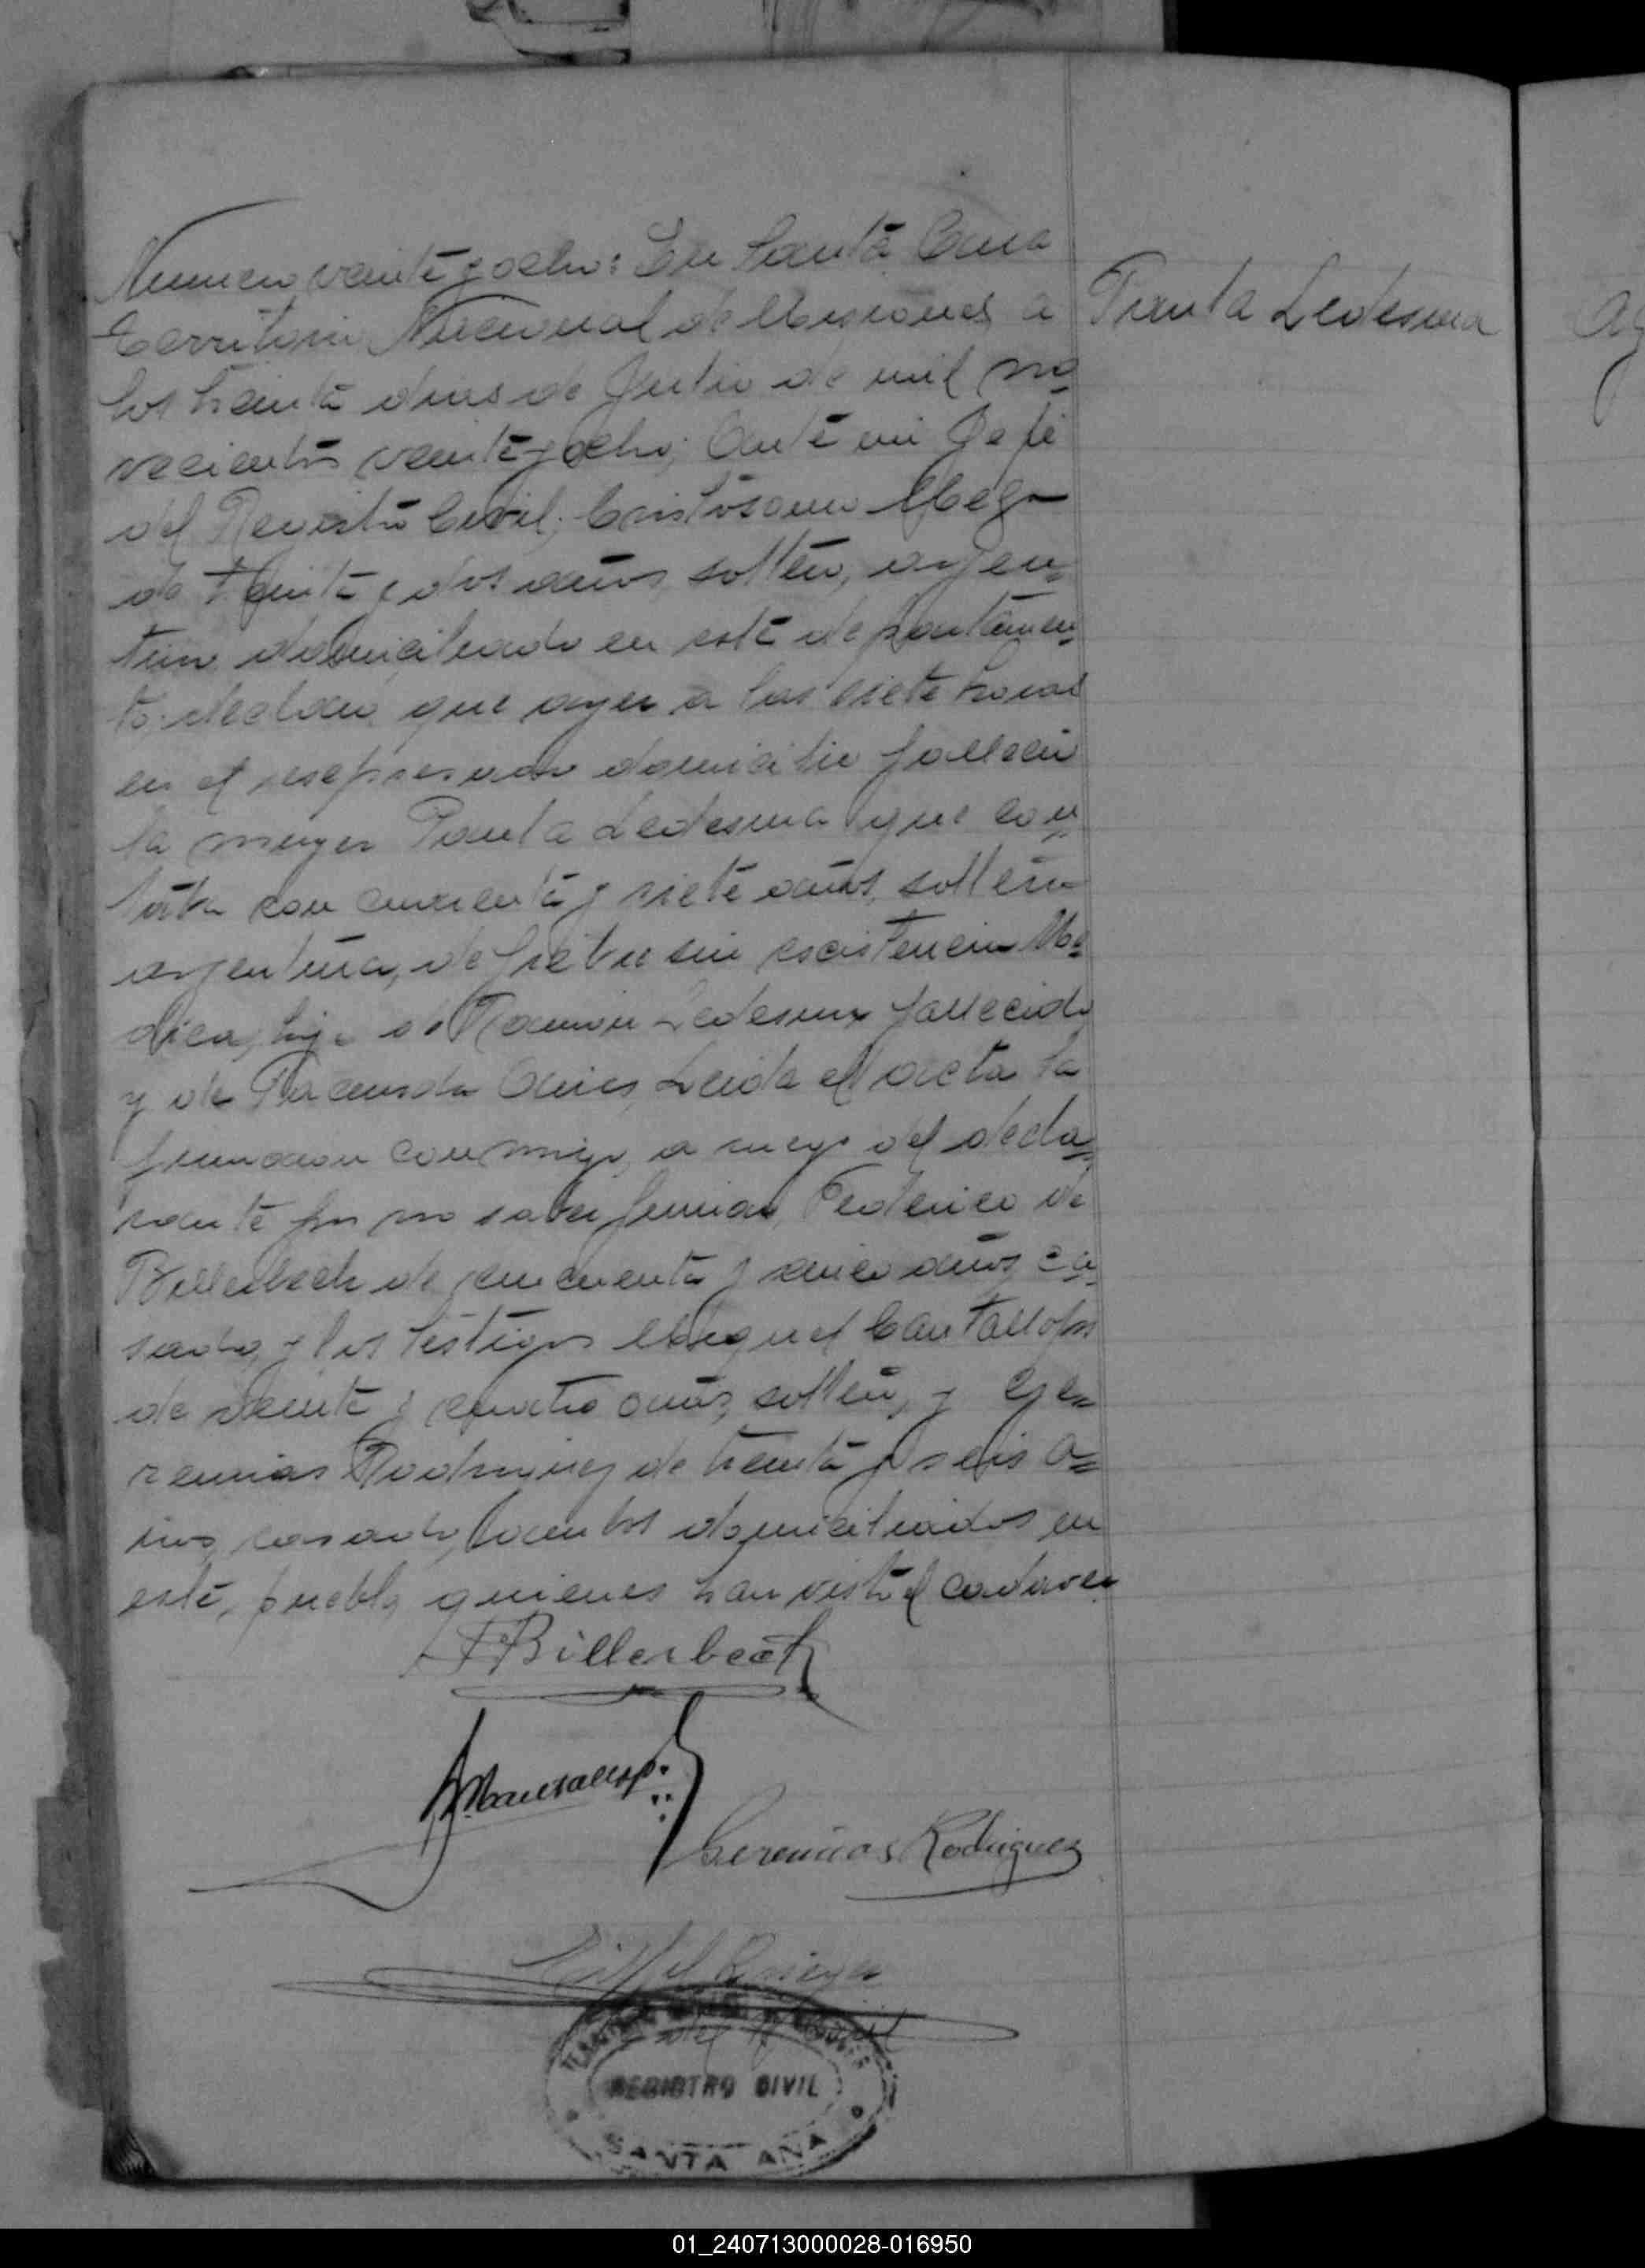 Numero veinte y ocho: En Santa Ana
Territorio Nacional de Misiones a
los treinta dias de Julio de mil no
vecientos veinte y ocho; Ante mi Jefe
del Registro Civil; Crisostomo
de treinta y dos años, soltero, argen=
tino, domiciliado en este departamen=
to: declaro que ayer a las siete horas
en el expresado domicilio fallecio
la mujer Paula Ledesma que con=
taba con cuarenta y siete años, soltera
argentina, de fiebre sin escistencia Me=
dica, hija de Ramon Ledesma fallecido
y de Leida el acta la
firmaron conmigo, a ruego del decla=
rante por no saber firmar, Federico de
Billerbeck de cincuenta y cinco años, ca=
sado, y los testigos Miguel Cantallops
de veinte y cuatro años, soltero, y Ge=
remias Rodriguez de treinta y seis a=
ños, casado, ambos domiciliados en
este, pueblo, quienes han visto el cadaver.
Paula Ledesma
FBillerbeck
Geremias Rodriguez
del R Civil
REGISTRO CIVIL
SANTA ANA
01_240713000028-016950